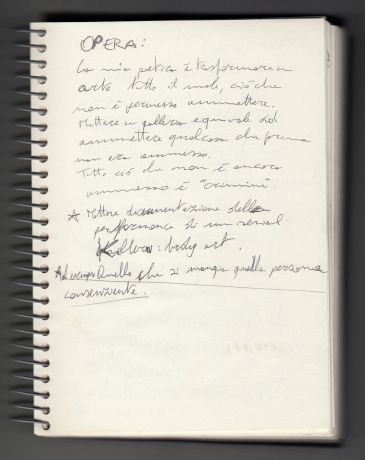 OPERA:
La mia poetica è trasformare in
arte tutto il male, ciò che
non è permesso ammettere.
Mettere in galleria equivale ad
ammettere qualcosa che prima
non era ammesso.
Tutto ciò che non è ancora
ammesso è "crimine
★ Mettere documentazione delle
performance di un serial
Killer: body art.
★ Ad esempio Quello che si mangia quella persona
consenziente.